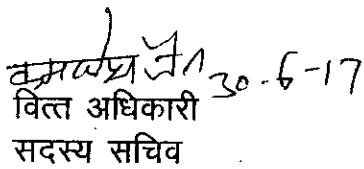 30-6-17
वित्त अधिकारी
सदस्य सचिव